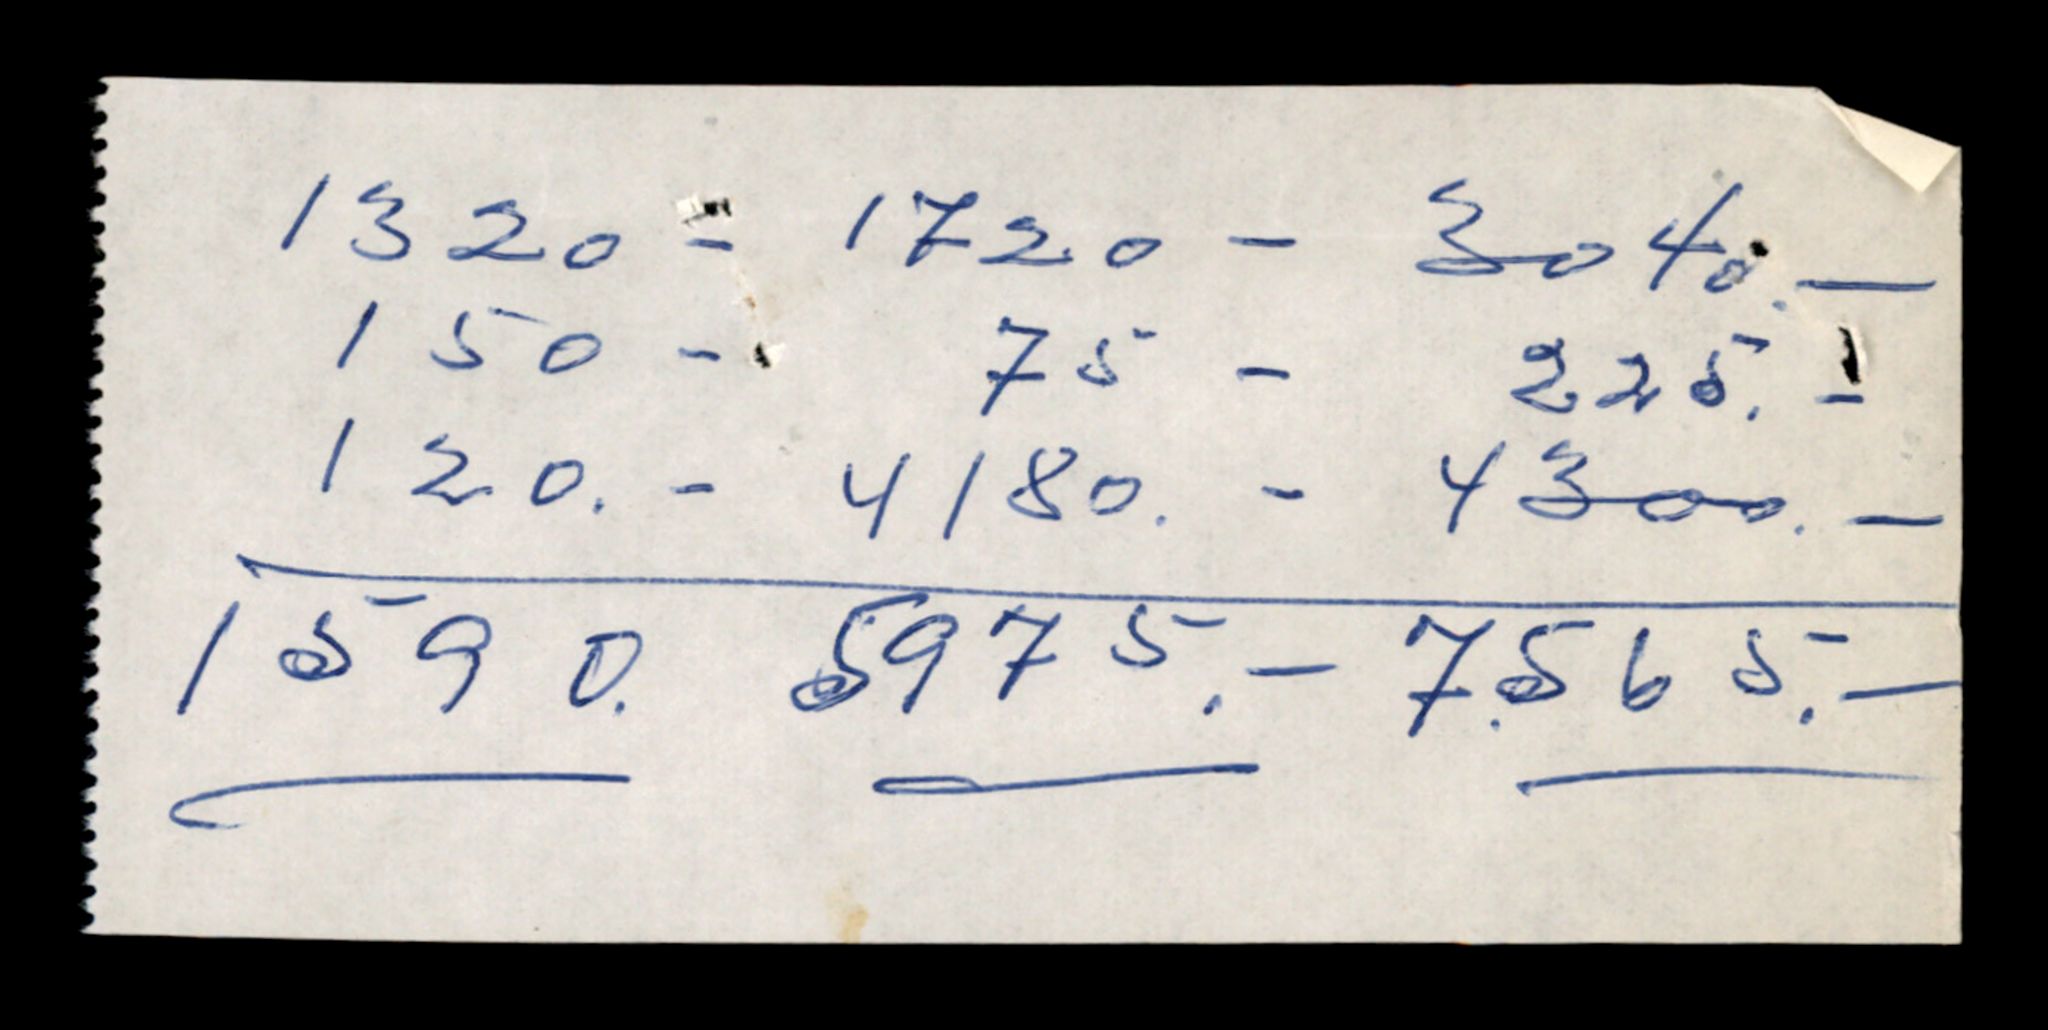 1320 - 1720 - 3040.—
150 - 75 - 225.-
120. - 4180. - 4300.—
1590. 5975.— 7.565.—